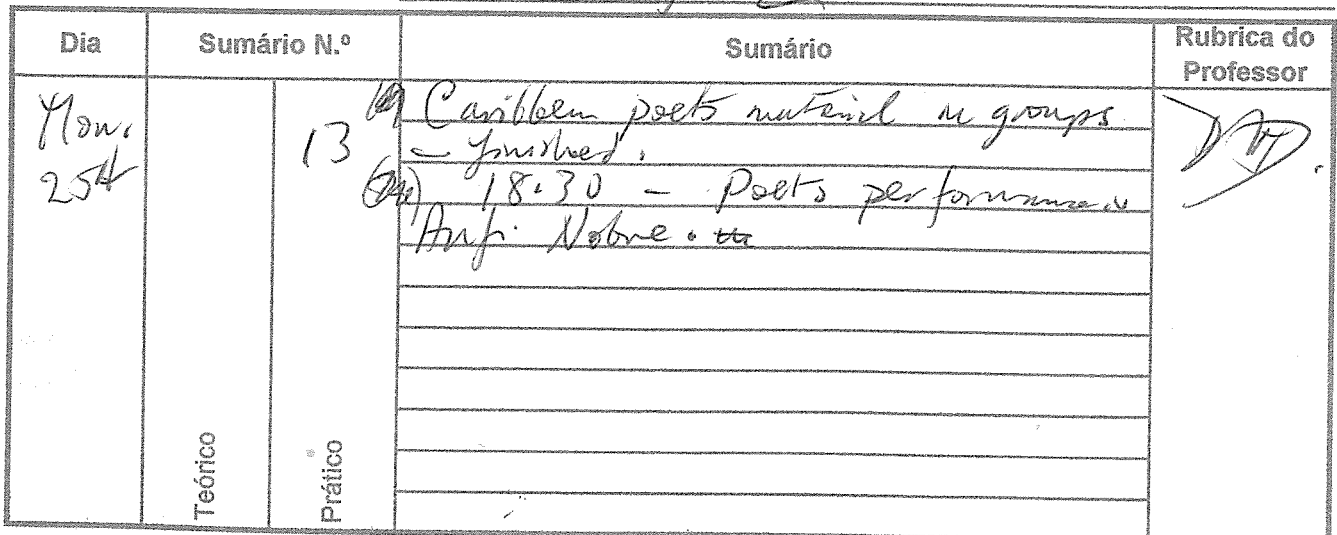 Dia Sumário N.º Sumário Rubrica do Professor
Mon. 25th
13
Caribbean poets material in groups
– finished.
18.30 – Poets performance
Anf. Nobre.
Teórico
Prático